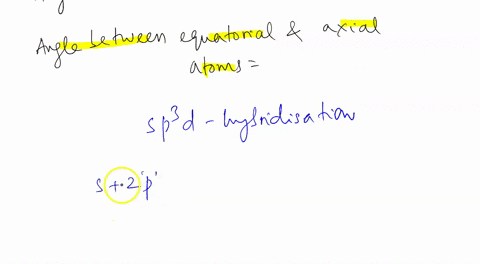 Angle between equatorial & axial
atoms =
sp³d - hybridisation
s + 2 'p'